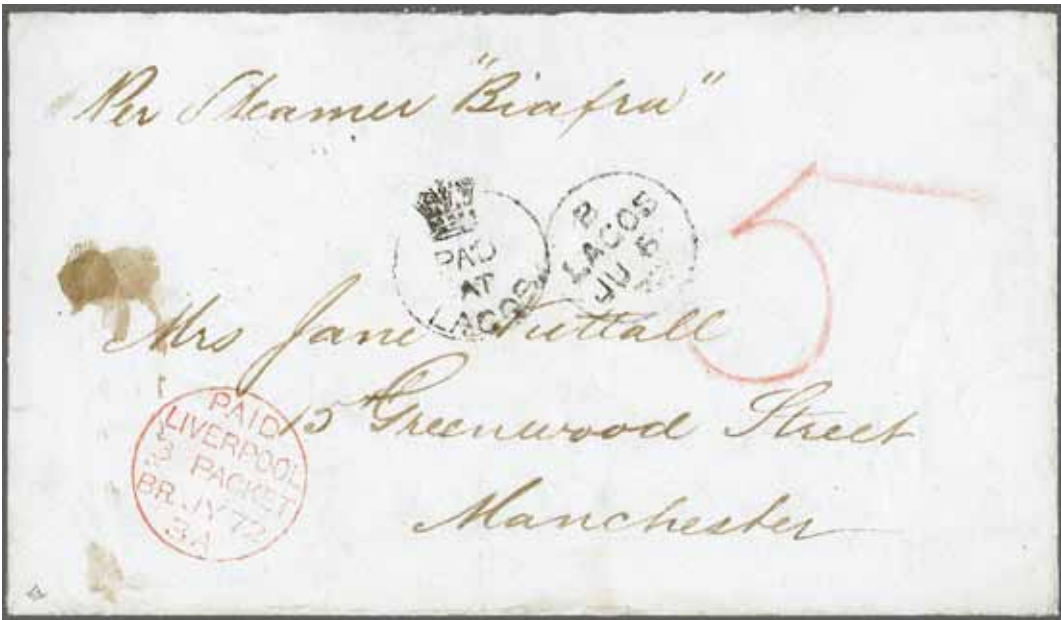 Per Steamer "Biafra"
PAID
AT
LAGOS
LAGOS
JU 5
5
Mrs Jane Nuttall
15 Greenwood Street
Manchester
PAID
LIVERPOOL
PACKET
BR. JY 72
3A